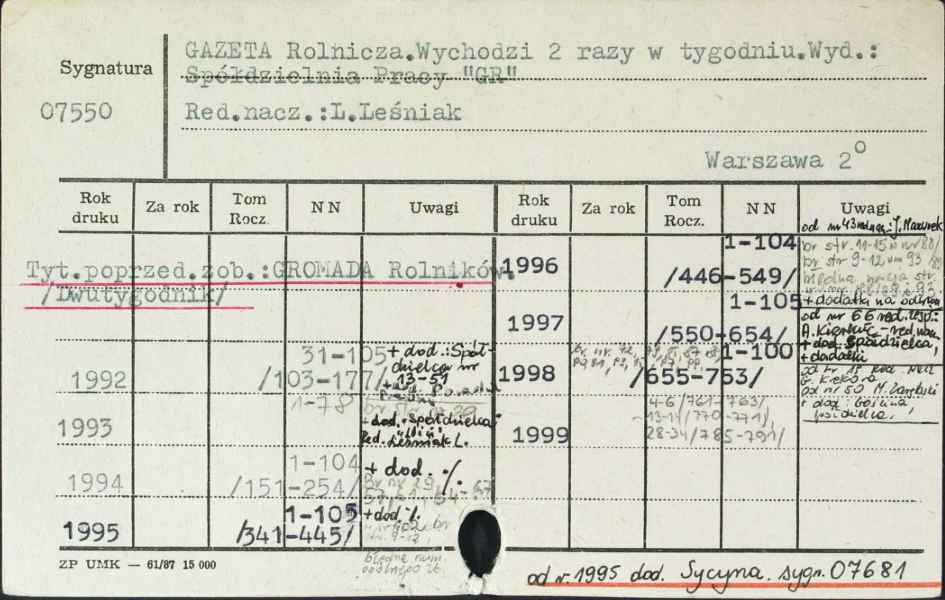 GAZETA Rolnicza.Wychodzi 2 razy w tygodniu.Wyd.:
Sygnatura
Spółdzielnia Pracy "GR"
07550
Red.nacz.:L.Leśniak
Warszawa 2°
Rok druku Za rok Tom Rocz. NN Uwagi Rok druku Za rok Tom Rocz. NN Uwagi
Tyt.poprzed.zob.:GROMADA Rolników.
/Dwutygodnik/
1992 31-105 /103-177/ + dod.: Spół-
dzielca nr
13-51
1993 1-78
+ dod. Spółdzielca
Red. Leśniak L.
1994 1-104 /151-254/ + dod. ./.
1995 1-105 /341-445/ + dod. ./.
błędna num.
1996 1-104 /446-549/ od nr 43 J. Mazurek
br str. 11-15 w nr 88/
br str 9-12 nr 93
1997 1-105 /550-654/ + dodatki
od nr 66 red.
+ dod. Spółdzielca,
+ dodatki
1998 1-100 /655-753/
od nr 50 M.
1999 4-6/761-763/
13-14/770-771/
28-34/785-791/
+ dod.
ZP UMK — 61/87 15 000
od r. 1995 dod. Sycyna. sygn. 07681